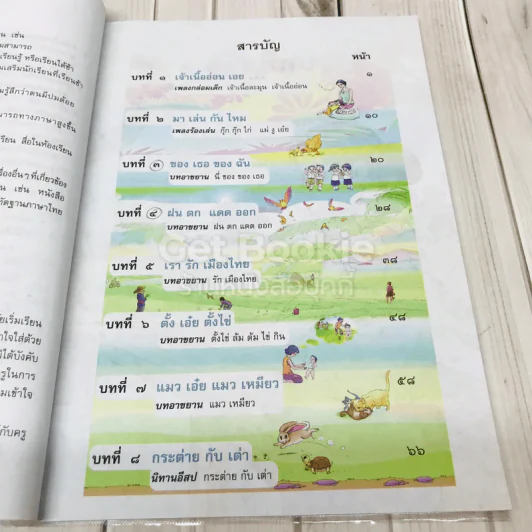 น เช่น
นสามารถ
เรียนรู้ หรือเรียนได้ช้า
เสริมนักเรียนที่เรียนช้า
รู้สึกว่าตนมีปมด้อย
มารถทางภาษาสูงขึ้น
น สื่อในห้องเรียน
รื่องอื่นๆ ที่เกี่ยวข้อง
น เช่น หนังสือ
ทัดฐานภาษาไทย
ยเริ่มเรียน
าใจใส่ด้วย
มได้บังคับ
รูในการ
มเข้าใจ
ก้กับครู
สารบัญ
หน้า
บทที่ ๑ เจ้าเนื้ออ่อน เอย ๑
เพลงกล่อมเด็ก เจ้าเนื้อละมุน เจ้าเนื้ออ่อน
บทที่ ๒ มา เล่น กัน ไหม ๑๐
เพลงร้องเล่น กุ๊ก กุ๊ก ไก่ แม่ งู เอ๋ย
บทที่ ๓ ของ เธอ ของ ฉัน ๒๐
บทอาขยาน นี่ ของ ของ เธอ
บทที่ ๔ ฝน ตก แดด ออก ๒๘
บทอาขยาน ฝน ตก แดด ออก
Get Bookie
บทที่ ๕ เรา รัก เมืองไทย ๓๘
บทอาขยาน รัก เมืองไทย
บทที่ ๖ ตั้ง เอ๋ย ตั้งไข่ ๔๘
บทอาขยาน ตั้งไข่ ล้ม ต้ม ไข่ กิน
บทที่ ๗ แมว เอ๋ย แมว เหมียว ๕๘
บทอาขยาน แมว เหมียว
บทที่ ๘ กระต่าย กับ เต่า ๖๖
นิทานอีสป กระต่าย กับ เต่า